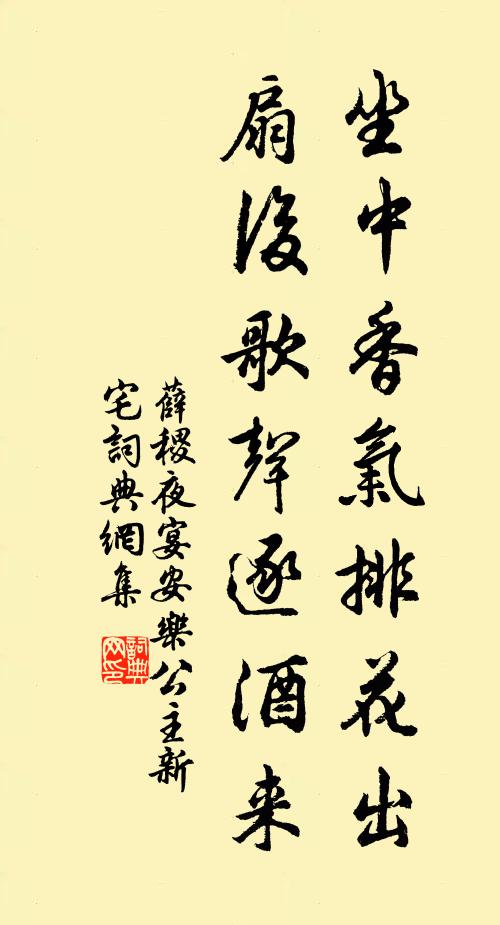 坐中香氣排花出
扇後歌聲逐酒来
薛稷夜宴安樂公主新
宅詞典網集
詞典
网印